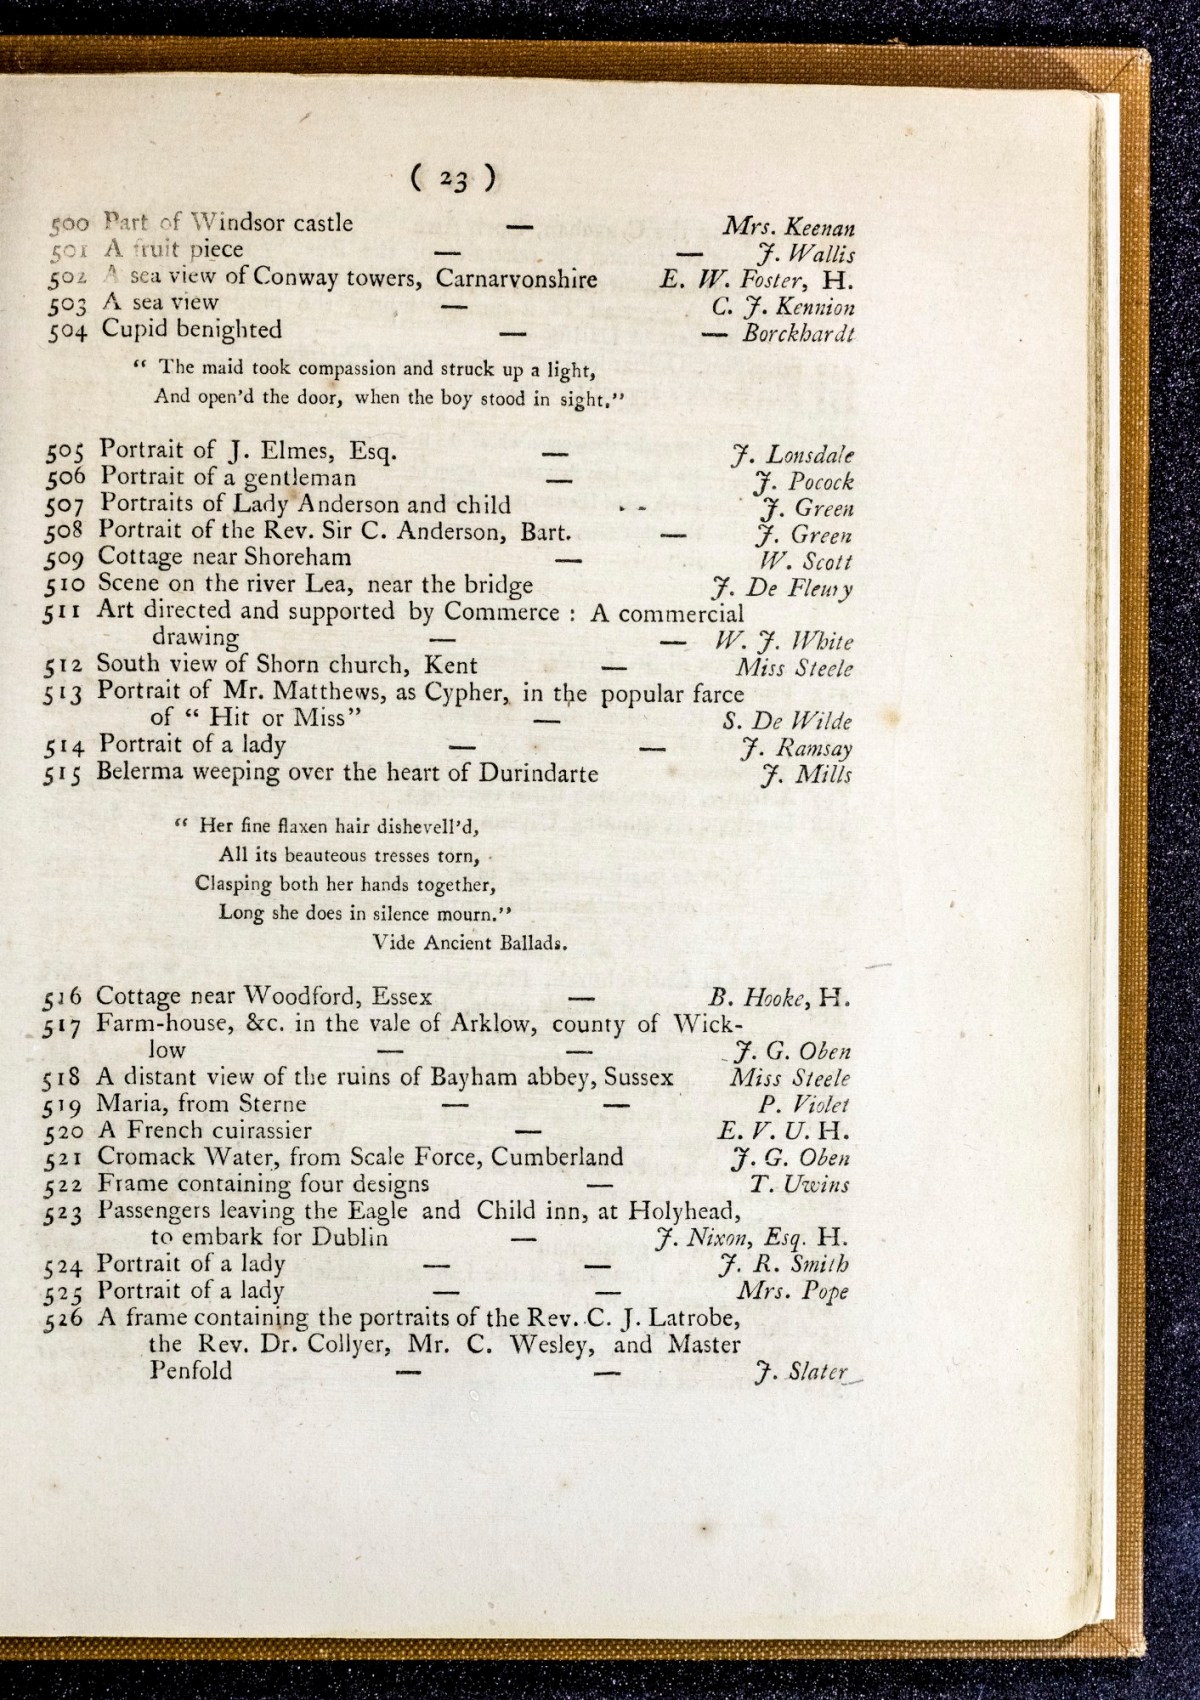 ( 23 )
500 Part of Windsor castle — Mrs. Keenan
501 A fruit piece — — J. Wallis
502 A sea view of Conway towers, Carnarvonshire E. W. Foster, H.
503 A sea view — C. J. Kennion
504 Cupid benighted — — Borckhardt
“ The maid took compassion and struck up a light,
And open'd the door, when the boy stood in sight.”
505 Portrait of J. Elmes, Esq. — J. Lonsdale
506 Portrait of a gentleman — J. Pocock
507 Portraits of Lady Anderson and child - - J. Green
508 Portrait of the Rev. Sir C. Anderson, Bart. — J. Green
509 Cottage near Shoreham — W. Scott
510 Scene on the river Lea, near the bridge J. De Fleury
511 Art directed and supported by Commerce : A commercial
drawing — — W. J. White
512 South view of Shorn church, Kent — Miss Steele
513 Portrait of Mr. Matthews, as Cypher, in the popular farce
of “ Hit or Miss” — S. De Wilde
514 Portrait of a lady — — J. Ramsay
515 Belerma weeping over the heart of Durindarte J. Mills
“ Her fine flaxen hair dishevell'd,
All its beauteous tresses torn,
Clasping both her hands together,
Long she does in silence mourn.”
Vide Ancient Ballads.
516 Cottage near Woodford, Essex — B. Hooke, H.
517 Farm-house, &c. in the vale of Arklow, county of Wick-
low — — J. G. Oben
518 A distant view of the ruins of Bayham abbey, Sussex Miss Steele
519 Maria, from Sterne — — P. Violet
520 A French cuirassier — E. V. U. H.
521 Cromack Water, from Scale Force, Cumberland J. G. Oben
522 Frame containing four designs — T. Uwins
523 Passengers leaving the Eagle and Child inn, at Holyhead,
to embark for Dublin — J. Nixon, Esq. H.
524 Portrait of a lady — — J. R. Smith
525 Portrait of a lady — — Mrs. Pope
526 A frame containing the portraits of the Rev. C. J. Latrobe,
the Rev. Dr. Collyer, Mr. C. Wesley, and Master
Penfold — — J. Slater